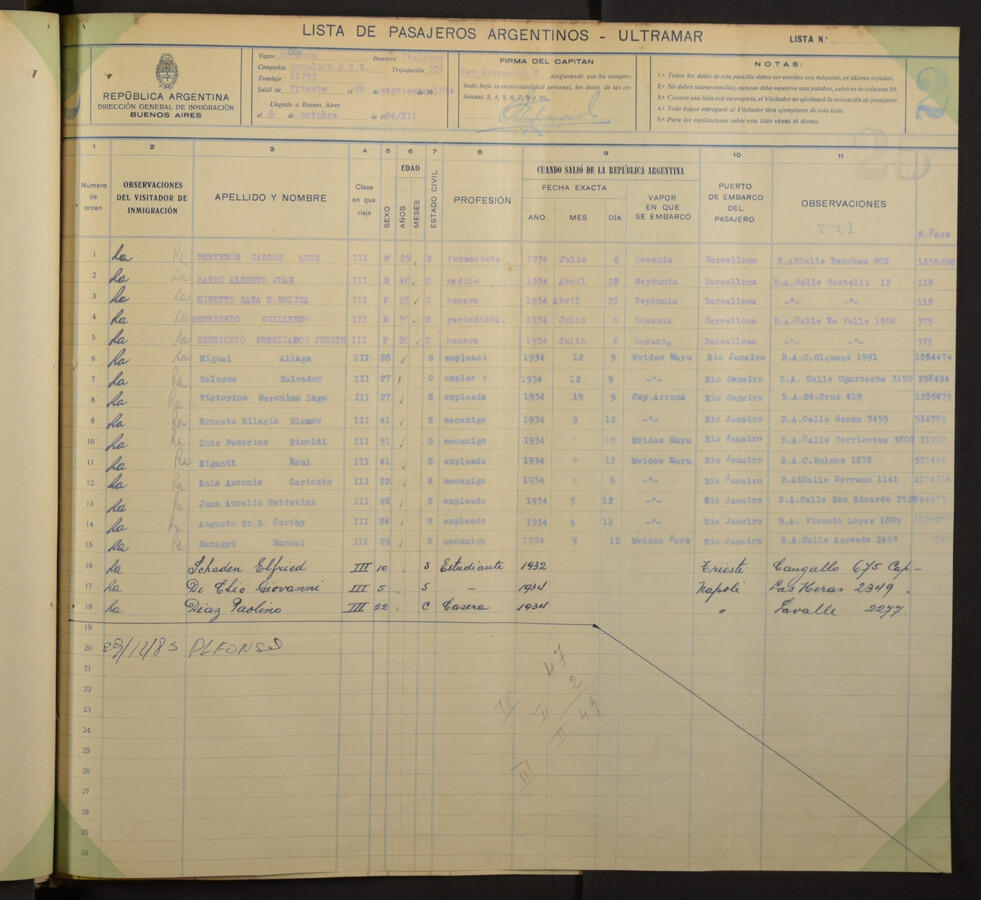 LISTA DE PASAJEROS ARGENTINOS - ULTRAMAR
LISTA N.º
REPÚBLICA ARGENTINA
DIRECCIÓN GENERAL DE INMIGRACIÓN
BUENOS AIRES
Vapor Bandera Italiana
Compañía Tripulación
Tonelaje 11752
Salió de Trieste el 20 de septiembre de 1934
Llegado a Buenos Aires
el 6 de octubre de 1934/XII
FIRMA DEL CAPITAN
asegurando que ha comprobado, bajo su responsabilidad personal, los datos de las columnas 3, 4, 5, 6, 7, 8 y 10.
NOTAS:
1.ª Todos los datos de esta planilla deben ser escritos con máquina, en idioma español.
2.ª No deben usarse comillas, aunque deba repetirse una palabra, salvo en la columna 10.
3.ª Cuando una lista esté incompleta, el Visitador no efectuará la revisación de pasajeros.
4.ª Todo buque entregará al Visitador dos ejemplares de esta lista.
5.ª Para las explicaciones sobre esta lista véase al dorso.
2
1 2 3 4 5 6 7 8 9 10 11
Número de orden
OBSERVACIONES DEL VISITADOR DE INMIGRACIÓN
APELLIDO Y NOMBRE
Clase en que viaja
SEXO
EDAD
AÑOS
MESES
ESTADO CIVIL
PROFESIÓN
CUANDO SALIÓ DE LA REPÚBLICA ARGENTINA
FECHA EXACTA
AÑO MES DÍA
VAPOR EN QUE SE EMBARCÓ
PUERTO DE EMBARCO DEL PASAJERO
OBSERVACIONES
N. Pass
1 La CARLOS LUIS III M 29 S farmacista 1934 Julio 6 Oceania Barcellona B.A. Calle Neuchen 202 1858200
2 La SARDO ALBERTO JUAN III M 40 C medico 1934 Abril 28 Neptunia Barcellona B.A. Calle Castelli 12 118
3 La MINETTO SARA E. NELIDA III F 28 C casera 1934 Abril 28 Neptunia Barcellona -"- -"- 118
4 La GUILLERMO III M C periodista 1934 Julio 6 Oceania Barcellona B.A. Calle La Valle 1206 375
5 La JUDITH III F C casera 1934 Julio 6 Oceania Barcellona -"- -"- 375
6 La Miguel Aliaga III 28 S empleado 1934 12 9 Mvideo Maru Rio Janeiro B.A.C.Clement 1991 1864474
7 La Saluzzo Salvador III 27 C empleado 1934 12 9 -"- Rio Janeiro B.A. Calle Ugarteche 3150 298494
8 La Victorino Geronimo Lago III 27 S empleado 1934 19 9 Cap.Arcona Rio Janeiro B.A.Ed.Cruz 419 1285475
9 La Ernesto Hilario Blanco III 41 S mecanigo 1934 9 12 -"- Rio Janeiro B.A.Calle Garan 3455 516785
10 La Luis Federico Rinoldi III 51 S mecanigo 1934 12 Mvideo Maru Rio Janeiro B.A.Calle Corrientes 3800
11 La Riganti Raul III 41 S empleado 1934 9 12 Mvideo Maru Rio Janeiro B.A.C.Bulnes 1878 527416
12 La Luis Antonio Caricato III 22 S mecanigo 1934 9 6 -"- Rio Janeiro B.A. Calle Serrano 1141
13 La Juan Aurelio Bettetini III 26 S empleado 1934 9 12 -"- Rio Janeiro B.A.Calle San Edoardo
14 La Augusto Carthy III 24 S empleado 1934 9 12 -"- Rio Janeiro B.A. Vicente Lopez 1609
15 La Donagri Manuel III 29 S mecanigo 1934 9 12 Mvideo Maru Rio Janeiro B.A.Calle Azevedo
16 La Schaden Elfried III 10 S Estudiante 1932 Trieste Cangallo 675 Cap.-
17 La Di Chio Giovanni III 5 S - 1934 Napoli Las Heras 2349.
18 La Diaz Paolino III 22 C Casera 1934 " Lavalle 2277
19
20 29/12/83 ALFONSO
21
22
23
24
25
26
27
28
29
30
47
2
49